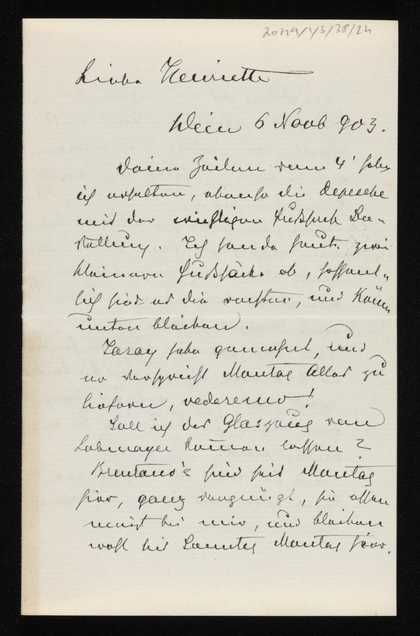 2029/1/5/38/24
Liebe Henriette
Wien 6 Novb 903.
Deine Zeilen vom 4' habe
ich erhalten, ebenso die Depesche
mit der Be-
stellung. Ich sende heute zwei
kleinere Fußsäcke ab, hoffent-
lich sind es die rechten, und
unten bleiben.
habe gemahnt, und
er verspricht Montag Alles zu
liefern, vederemo!
Soll ich das Glaszeug vom
Lobmayer kommen lassen?
Brentano's sind seit Montag
hier, ganz vergnügt, sie essen
meist bei mir, und bleiben
wohl bis Montag hier.